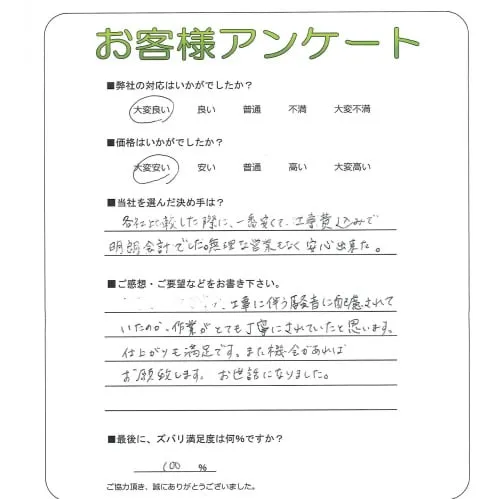 お客様アンケート
■弊社の対応はいかがでしたか?
大変良い 良い 普通 不満 大変不満
■価格はいかがでしたか?
大変安い 安い 普通 高い 大変高い
■当社を選んだ決め手は?
各社比較した際に、一番安くて、工事費込みで
明朗会計でした。無理な営業もなく安心出来た。
■ご感想・ご要望などをお書き下さい。
工事に伴う騒音に配慮されて
いたのか、作業がとても丁寧にされていたと思います。
仕上がりも満足です。また機会があれば
お願致します。お世話になりました。
■最後に、ズバリ満足度は何%ですか?
100 %
ご協力頂き、誠にありがとうございました。